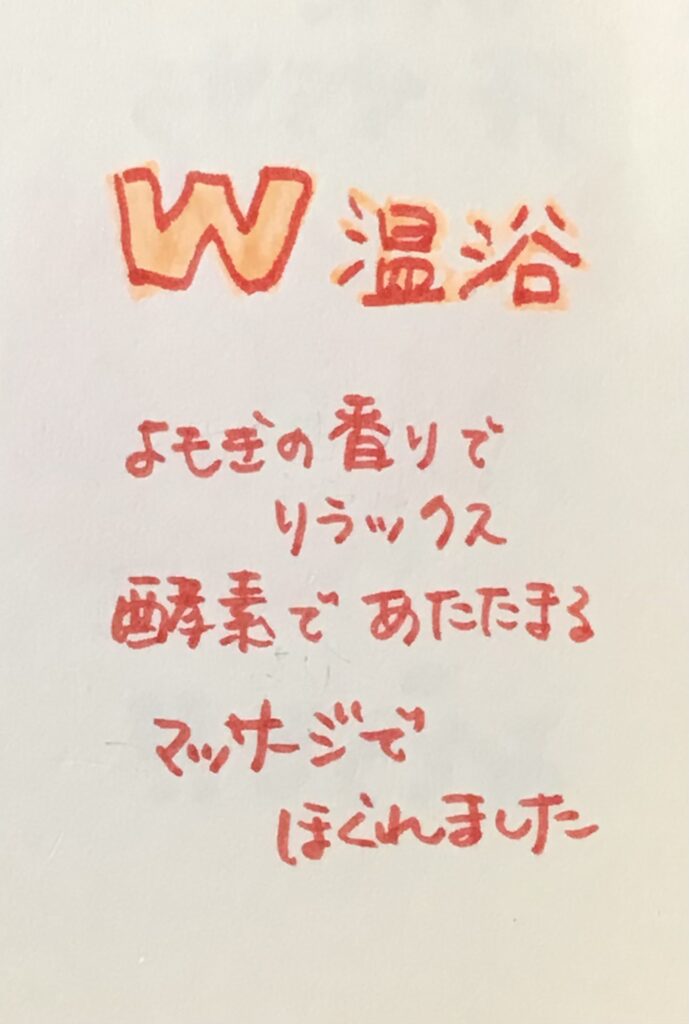 W温浴
よもぎの香りで
リラックス
酵素であたたまる
マッサージで
ほぐれました